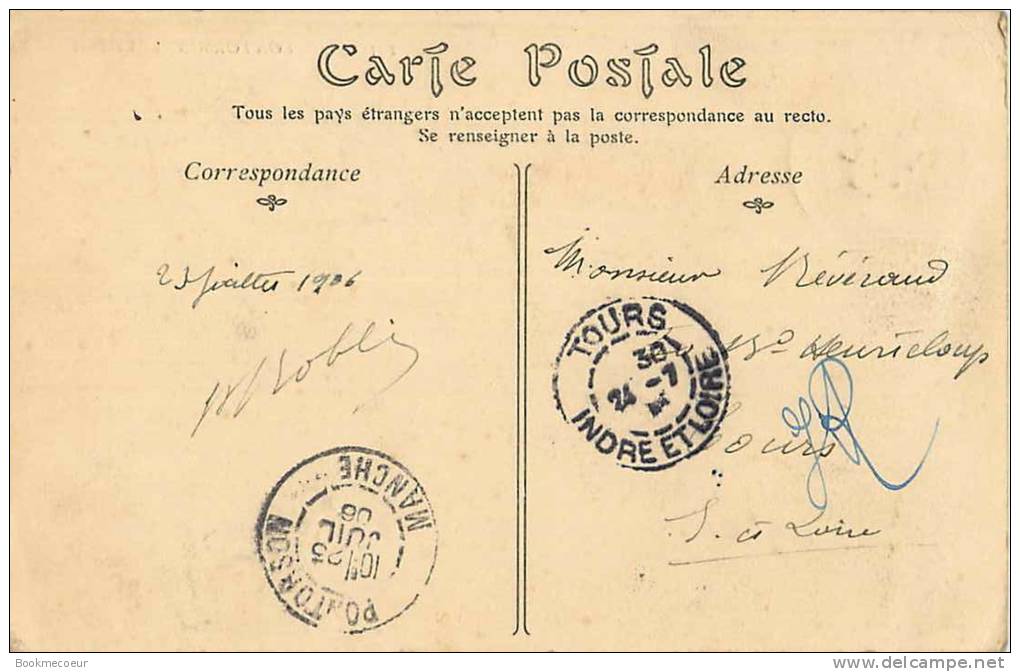 Carte Postale
Tous les pays étrangers n'acceptent pas la correspondance au recto.
Se renseigner à la poste.
Correspondance
23 Juillet 1906
Adresse
Monsieur Révérand
Bd Heurteloup
Tours
I. et Loire
TOURS
3E
24 -7
INDRE ET LOIRE
PONTORSON
10H 23
JUIL
06
MANCHE
Bookmecoeur
www.delcampe.net